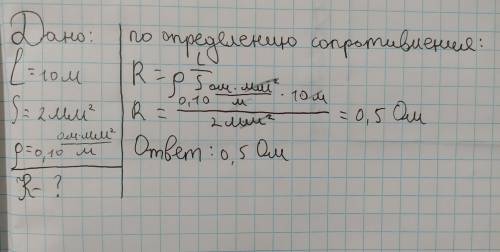 Дано:
L = 10 м
S = 2 мм²
ρ = 0,10 ом·мм²/м
R - ?
по определению сопротивления:
R = ρ L/S
R = 0,10 ом·мм²/м · 10 м / 2 мм² = 0,5 Ом
Ответ: 0,5 Ом